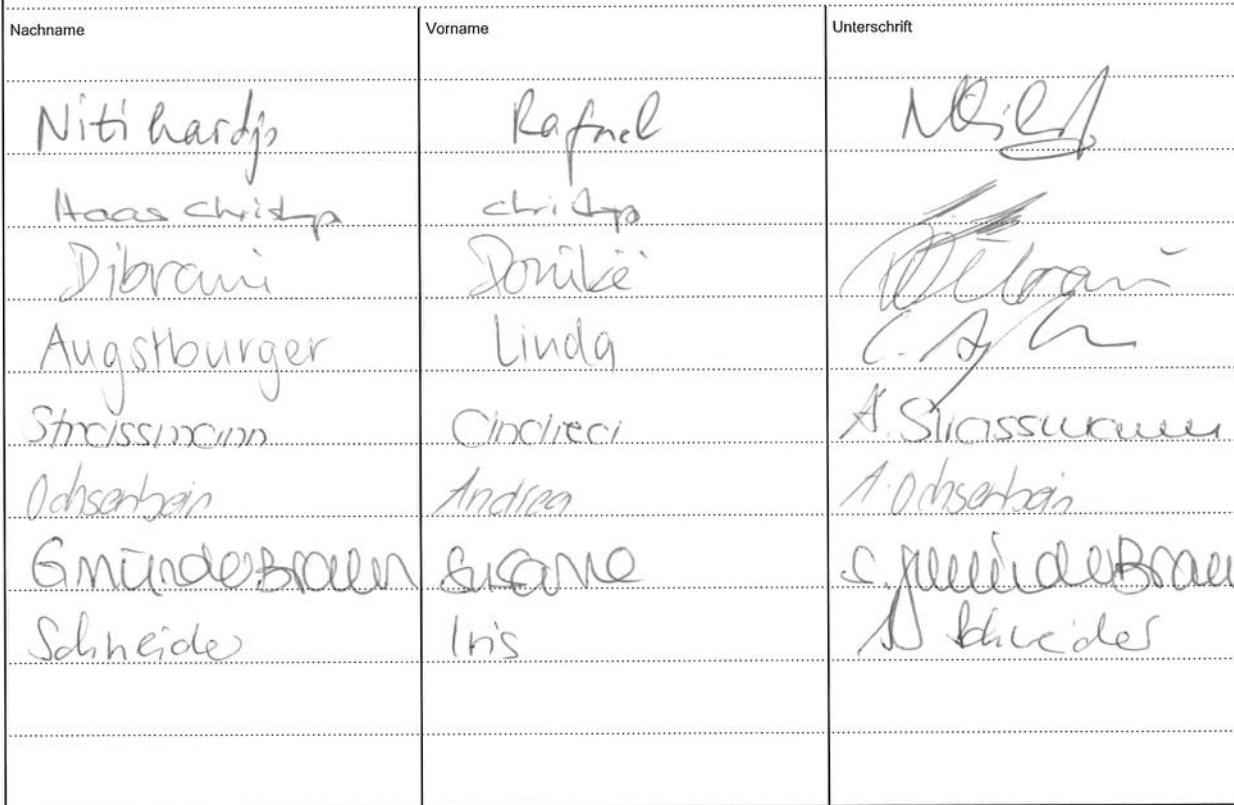 Nachname Vorname Unterschrift
Nitihardjo Rafael
Haas Christop christop
Dibrani Donikë Dibrani
Augstburger Linda
Strassmann Andrea A. Strassmann
Ochsenbein Andrea A. Ochsenbein
Gmünder Braun Susanne S. Gmünder Braun
Schneider Iris Schneider